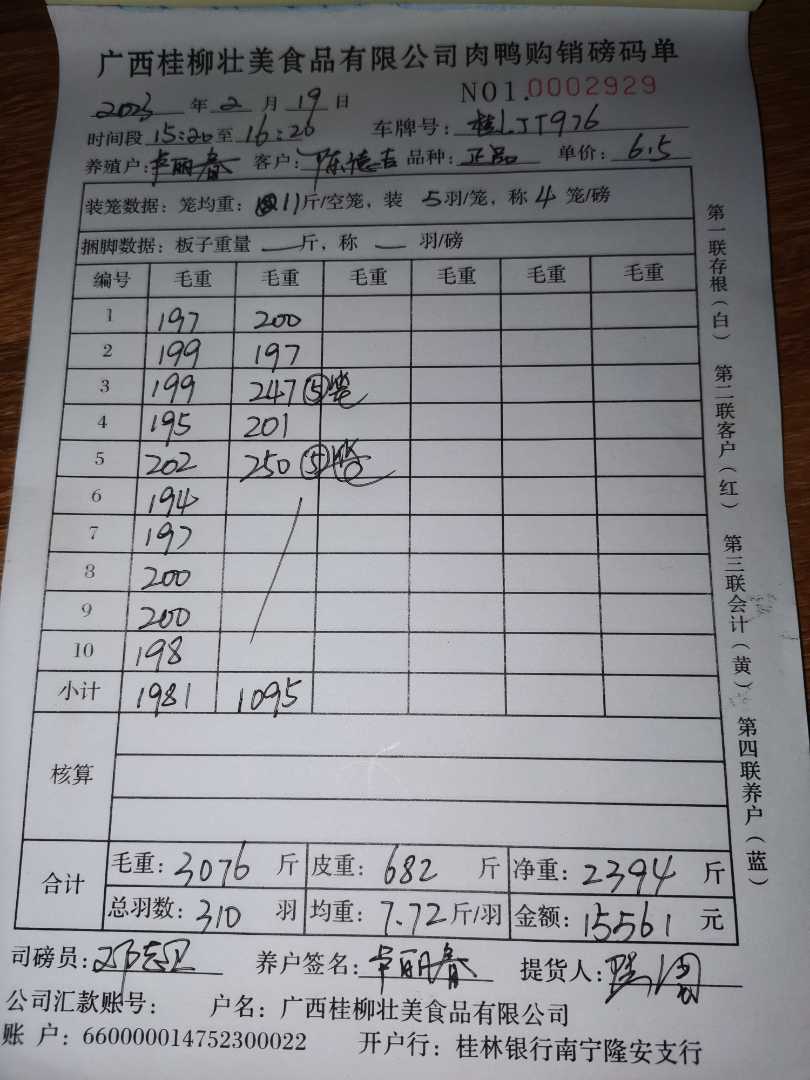 广西桂柳壮美食品有限公司肉鸭购销磅码单
NO1.0002929
2023 年 2 月 19 日
时间段 15:20 至 16:20 车牌号: 桂LJT976
养殖户: 卓丽春 客户: 陈德吉 品种: 正品 单价: 6.5
装笼数据: 笼均重: 11斤/空笼, 装 5羽/笼, 称 4 笼/磅
捆脚数据: 板子重量 — 斤, 称 — 羽/磅
编号 毛重 毛重 毛重 毛重 毛重 毛重
1 197 200
2 199 197
3 199 247 ⑤笼
4 195 201
5 202 250 ⑤笼
6 194
7 197
8 200
9 200
10 198
小计 1981 1095
核算
合计
毛重: 3076 斤 皮重: 682 斤 净重: 2394 斤
总羽数: 310 羽 均重: 7.72 斤/羽 金额: 15561 元
司磅员: 养户签名: 卓丽春 提货人:
公司汇款账号: 户名: 广西桂柳壮美食品有限公司
账 户: 660000014752300022 开户行: 桂林银行南宁隆安支行
第一联存根(白) 第二联客户(红) 第三联会计(黄) 第四联养户(蓝)